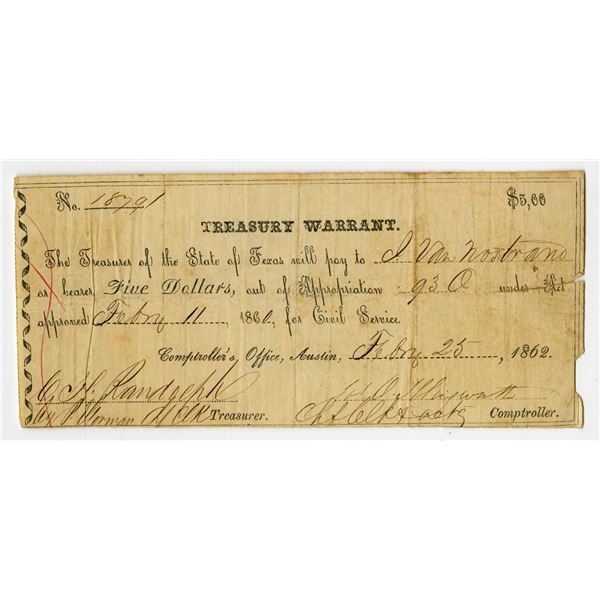 No. 18791 $5,00
TREASURY WARRANT.
The Treasurer of the State of Texas will pay to J. Van Nostrand
or bearer, Five Dollars, out of Appropriation 93 O under Act
approved Febry 11, 1860, for Civil Service.
Comptroller's Office, Austin, Febry 25, 1862.
C. H. Randolph
Treasurer. Comptroller.